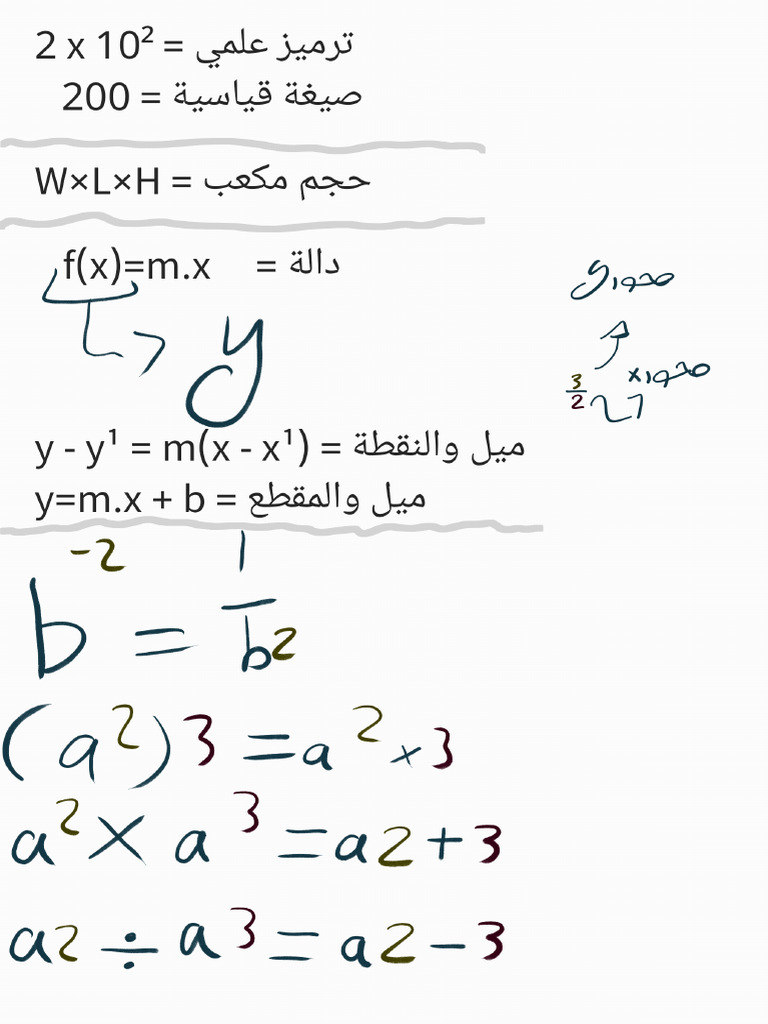 2 x 10² = ترميز علمي
200 = صيغة قياسية
W×L×H = حجم مكعب
f(x)=m.x = دالة
y
محور y
محور x
3/2
y - y¹ = m(x - x¹) = ميل والنقطة
y=m.x + b = ميل والمقطع
b⁻² = 1/b2
(a²)3 = a² × 3
a² × a³ = a2+3
a2 ÷ a3 = a2-3